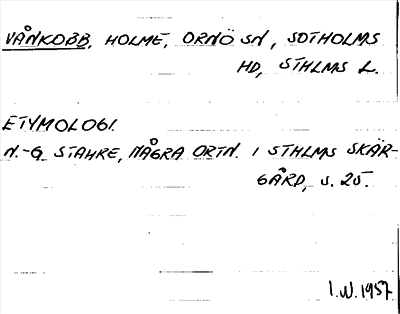 VÅNKOBB, HOLME, ORNÖ SN, SOTHOLMS
HD, STHLMS L.
ETYMOLOGI.
N.-G. STAHRE, NÅGRA ORTN. I STHLMS SKÄR-
GÅRD, s. 25.
I.W. 1957